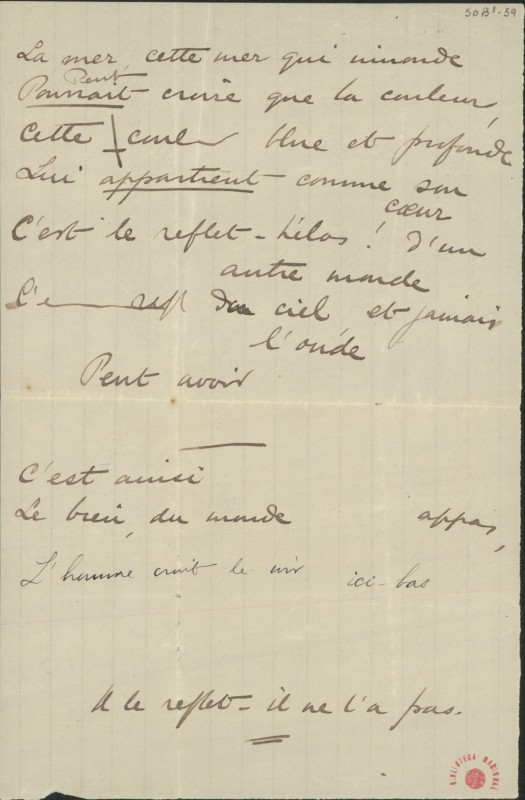 50B¹-39
La mer, cette mer qui inonde
Peut
Pourrait croire que la couleur,
Cette coul bleue et profonde
Lui appartient comme son
cœur
C'est le reflet – hélas! d'un
autre monde
C'e refl du ciel et jamais
l'onde
Peut avoir
C'est ainsi
Le bien, du monde appas,
L'homme croit le voir ici-bas
Il le reflet – il ne l'a pas.
BIBLIOTECA NACIONAL